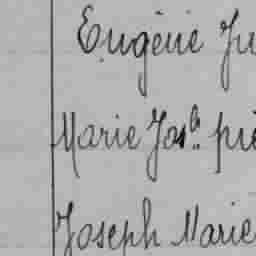 Eugénie Ju
Marie Jos.h pie
Joseph Marie